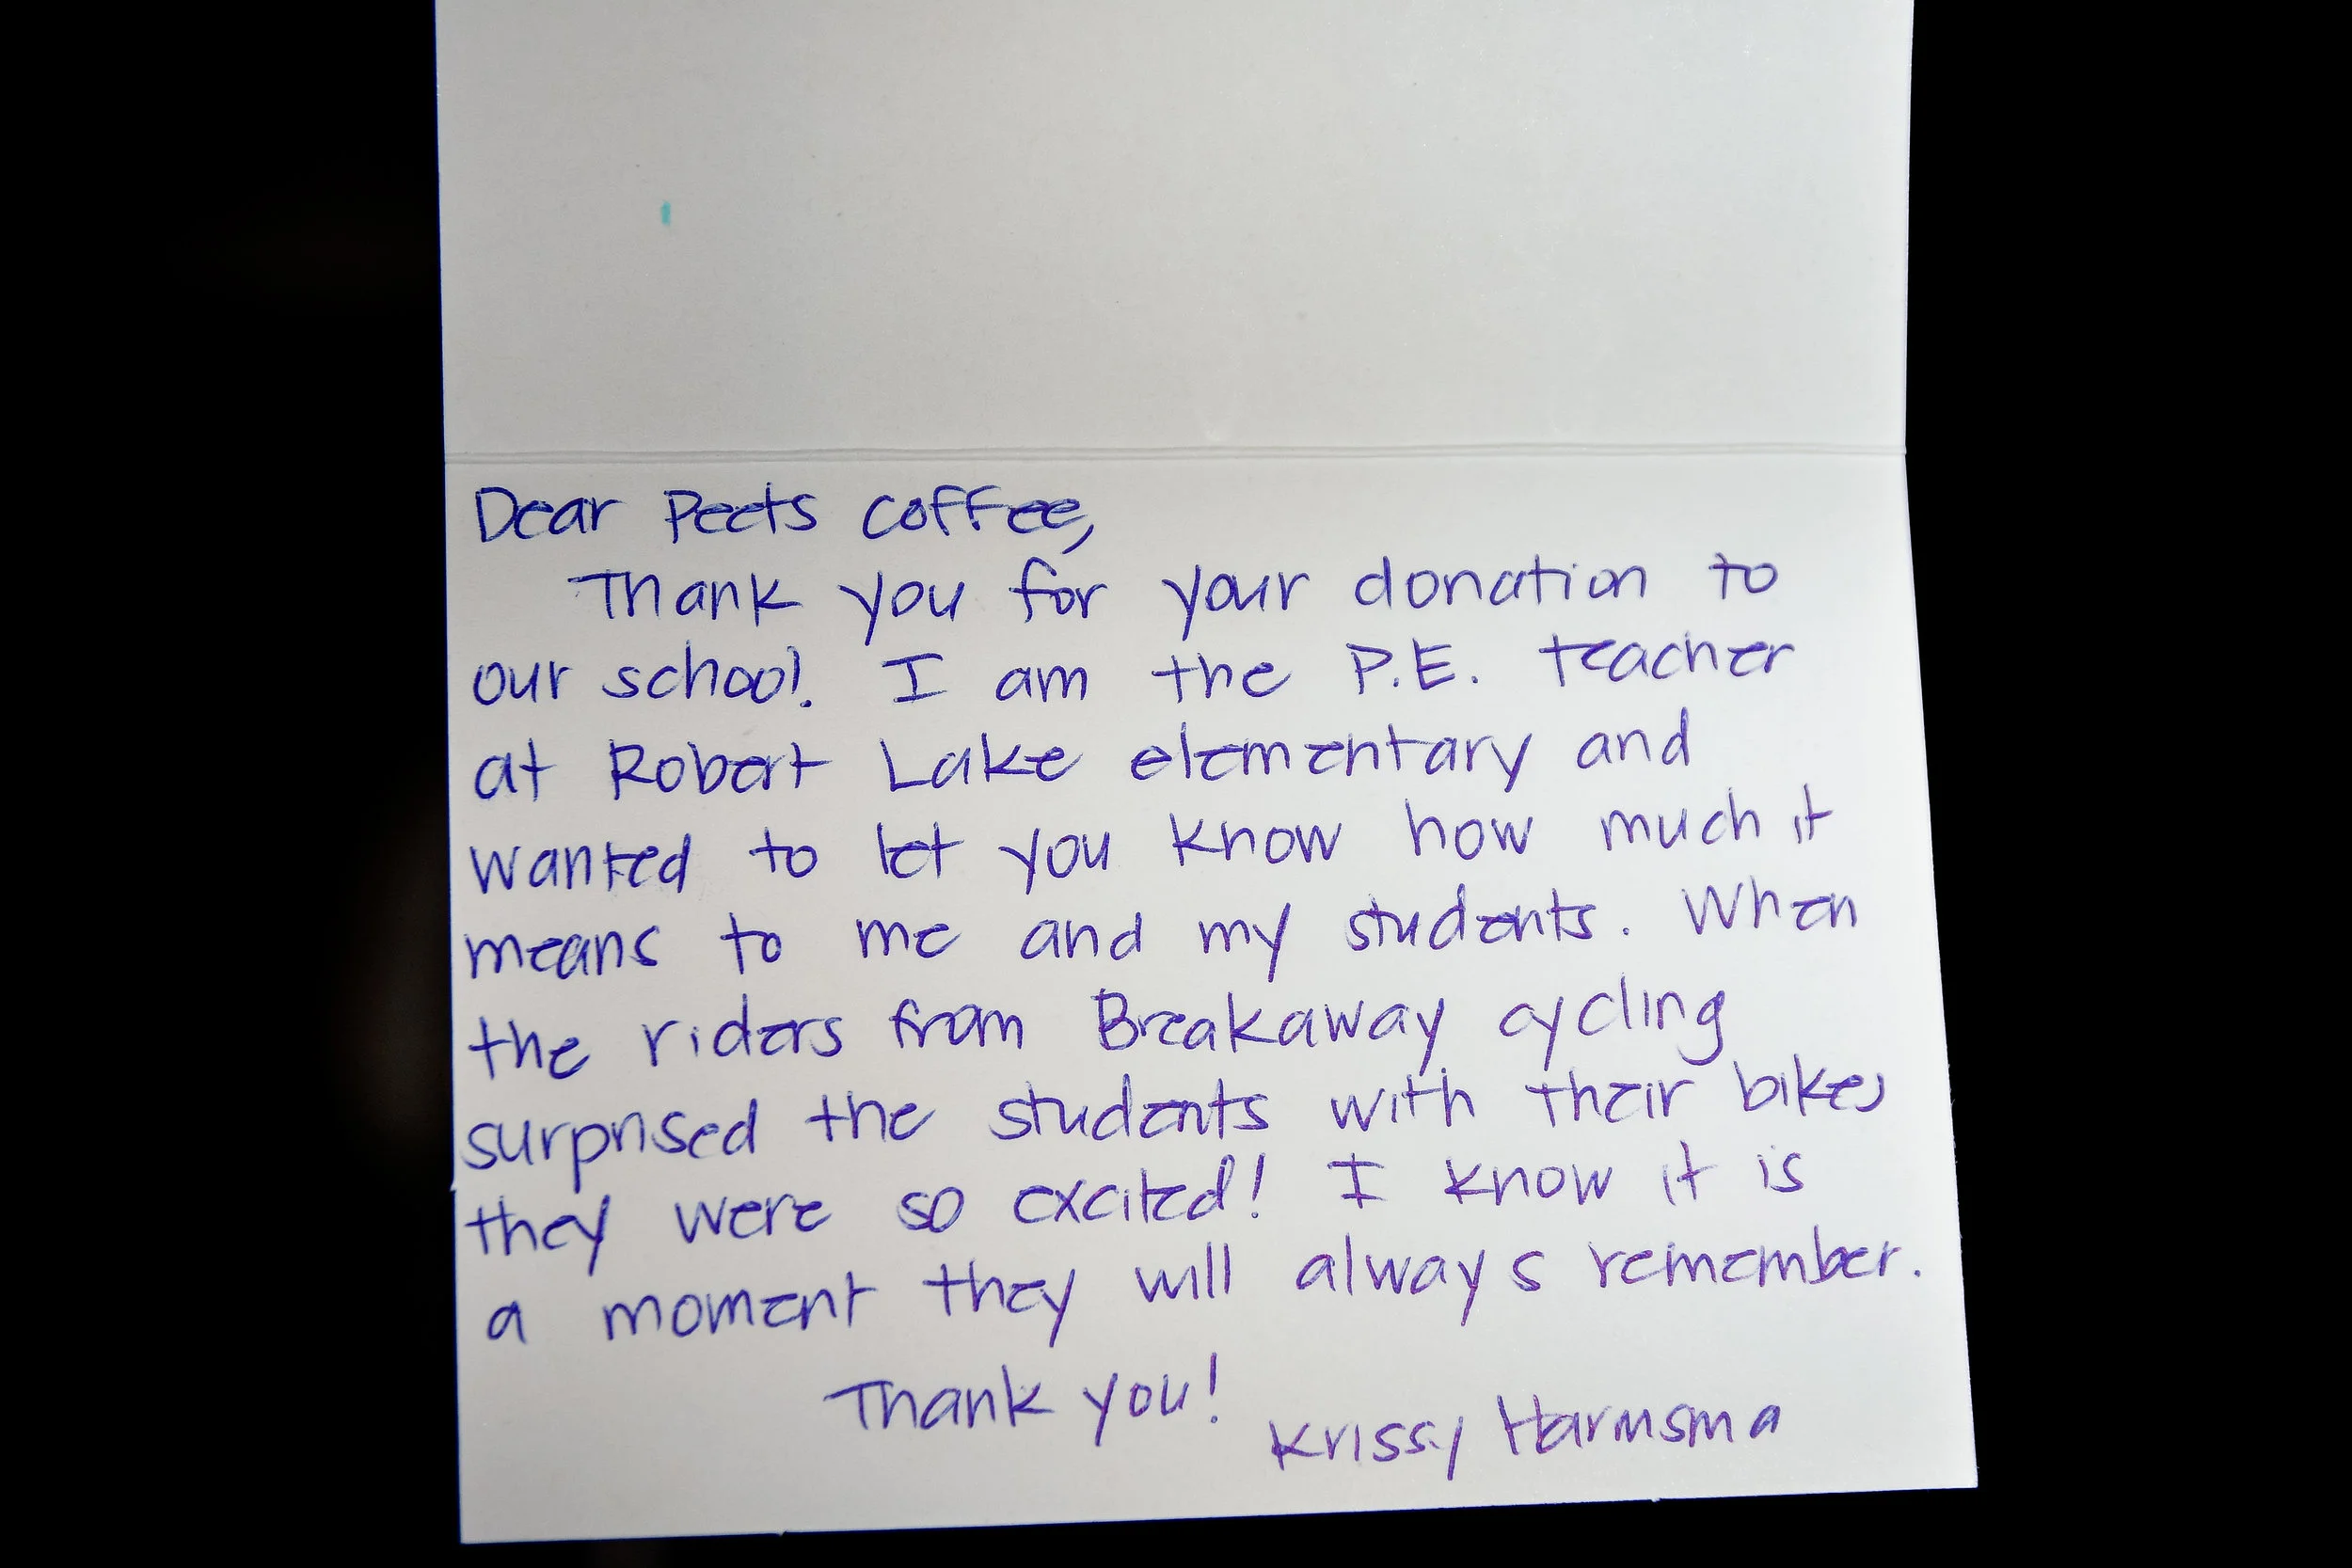 Dear Peets coffee,
Thank you for your donation to
our school. I am the P.E. teacher
at Robert Lake elementary and
wanted to let you know how much it
means to me and my students. When
the riders from Breakaway cycling
surprised the students with their bikes
they were so excited! I know it is
a moment they will always remember.
Thank you!
Krissy Harmsma